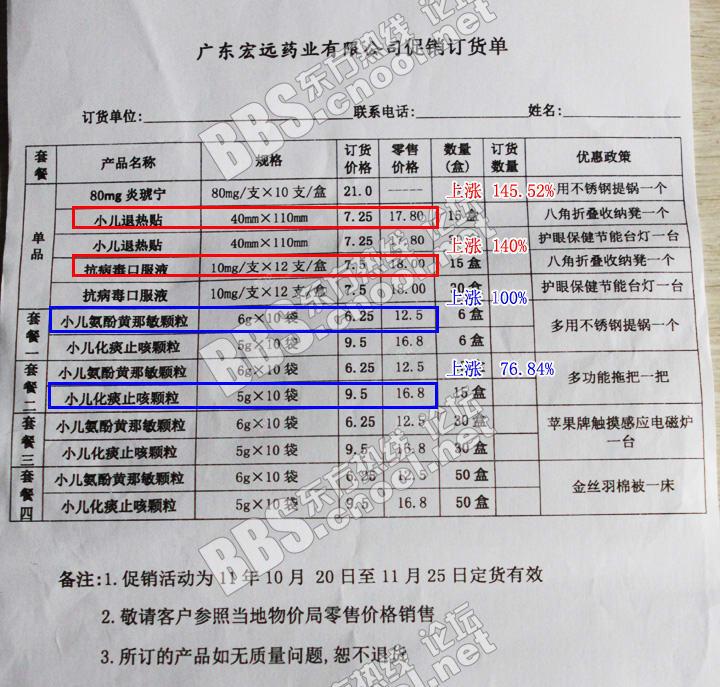 广东宏远药业有限公司促销订货单
订货单位: 联系电话: 姓名:
套餐 产品名称 规格 订货价格 零售价格 数量(盒) 订货数量 优惠政策
单品 80mg 炎琥宁 80mg/支×10支/盒 21.0 上涨 145.52% 多用不锈钢提锅一个
小儿退热贴 40mm×110mm 7.25 17.80 15 盒 八角折叠收纳凳一个
小儿退热贴 40mm×110mm 7.25 17.80 盒 上涨 140% 护眼保健节能台灯一台
抗病毒口服液 10mg/支×12支/盒 7.5 18.00 15 盒 八角折叠收纳凳一个
抗病毒口服液 10mg/支×12支/盒 7.5 18.00 盒 上涨 100% 护眼保健节能台灯一台
套餐一 小儿氨酚黄那敏颗粒 6g×10袋 6.25 12.5 6 盒 多用不锈钢提锅一个
小儿化痰止咳颗粒 5g×10袋 9.5 16.8 6 盒
套餐二 小儿氨酚黄那敏颗粒 6g×10袋 6.25 12.5 盒 上涨 76.84% 多功能拖把一把
小儿化痰止咳颗粒 5g×10袋 9.5 16.8 15 盒
套餐三 小儿氨酚黄那敏颗粒 6g×10袋 6.25 12.5 30 盒 苹果牌触摸感应电磁炉一台
小儿化痰止咳颗粒 5g×10袋 9.5 16.8 30 盒
套餐四 小儿氨酚黄那敏颗粒 6g×10袋 6.25 12.5 50 盒 金丝羽棉被一床
小儿化痰止咳颗粒 5g×10袋 9.5 16.8 50 盒
备注:1.促销活动为11年10月 20日至11月25日定货有效
2.敬请客户参照当地物价局零售价格销售
3.所订的产品如无质量问题,恕不退货
BBS东方热线 论坛
.cnool.net